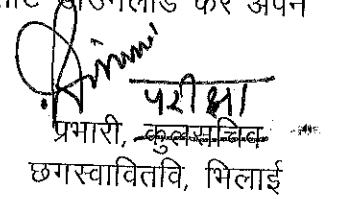 डाउनलोड कर अपने
परीक्षा
प्रभारी, कुलसचिव
छगस्वावितवि, भिलाई